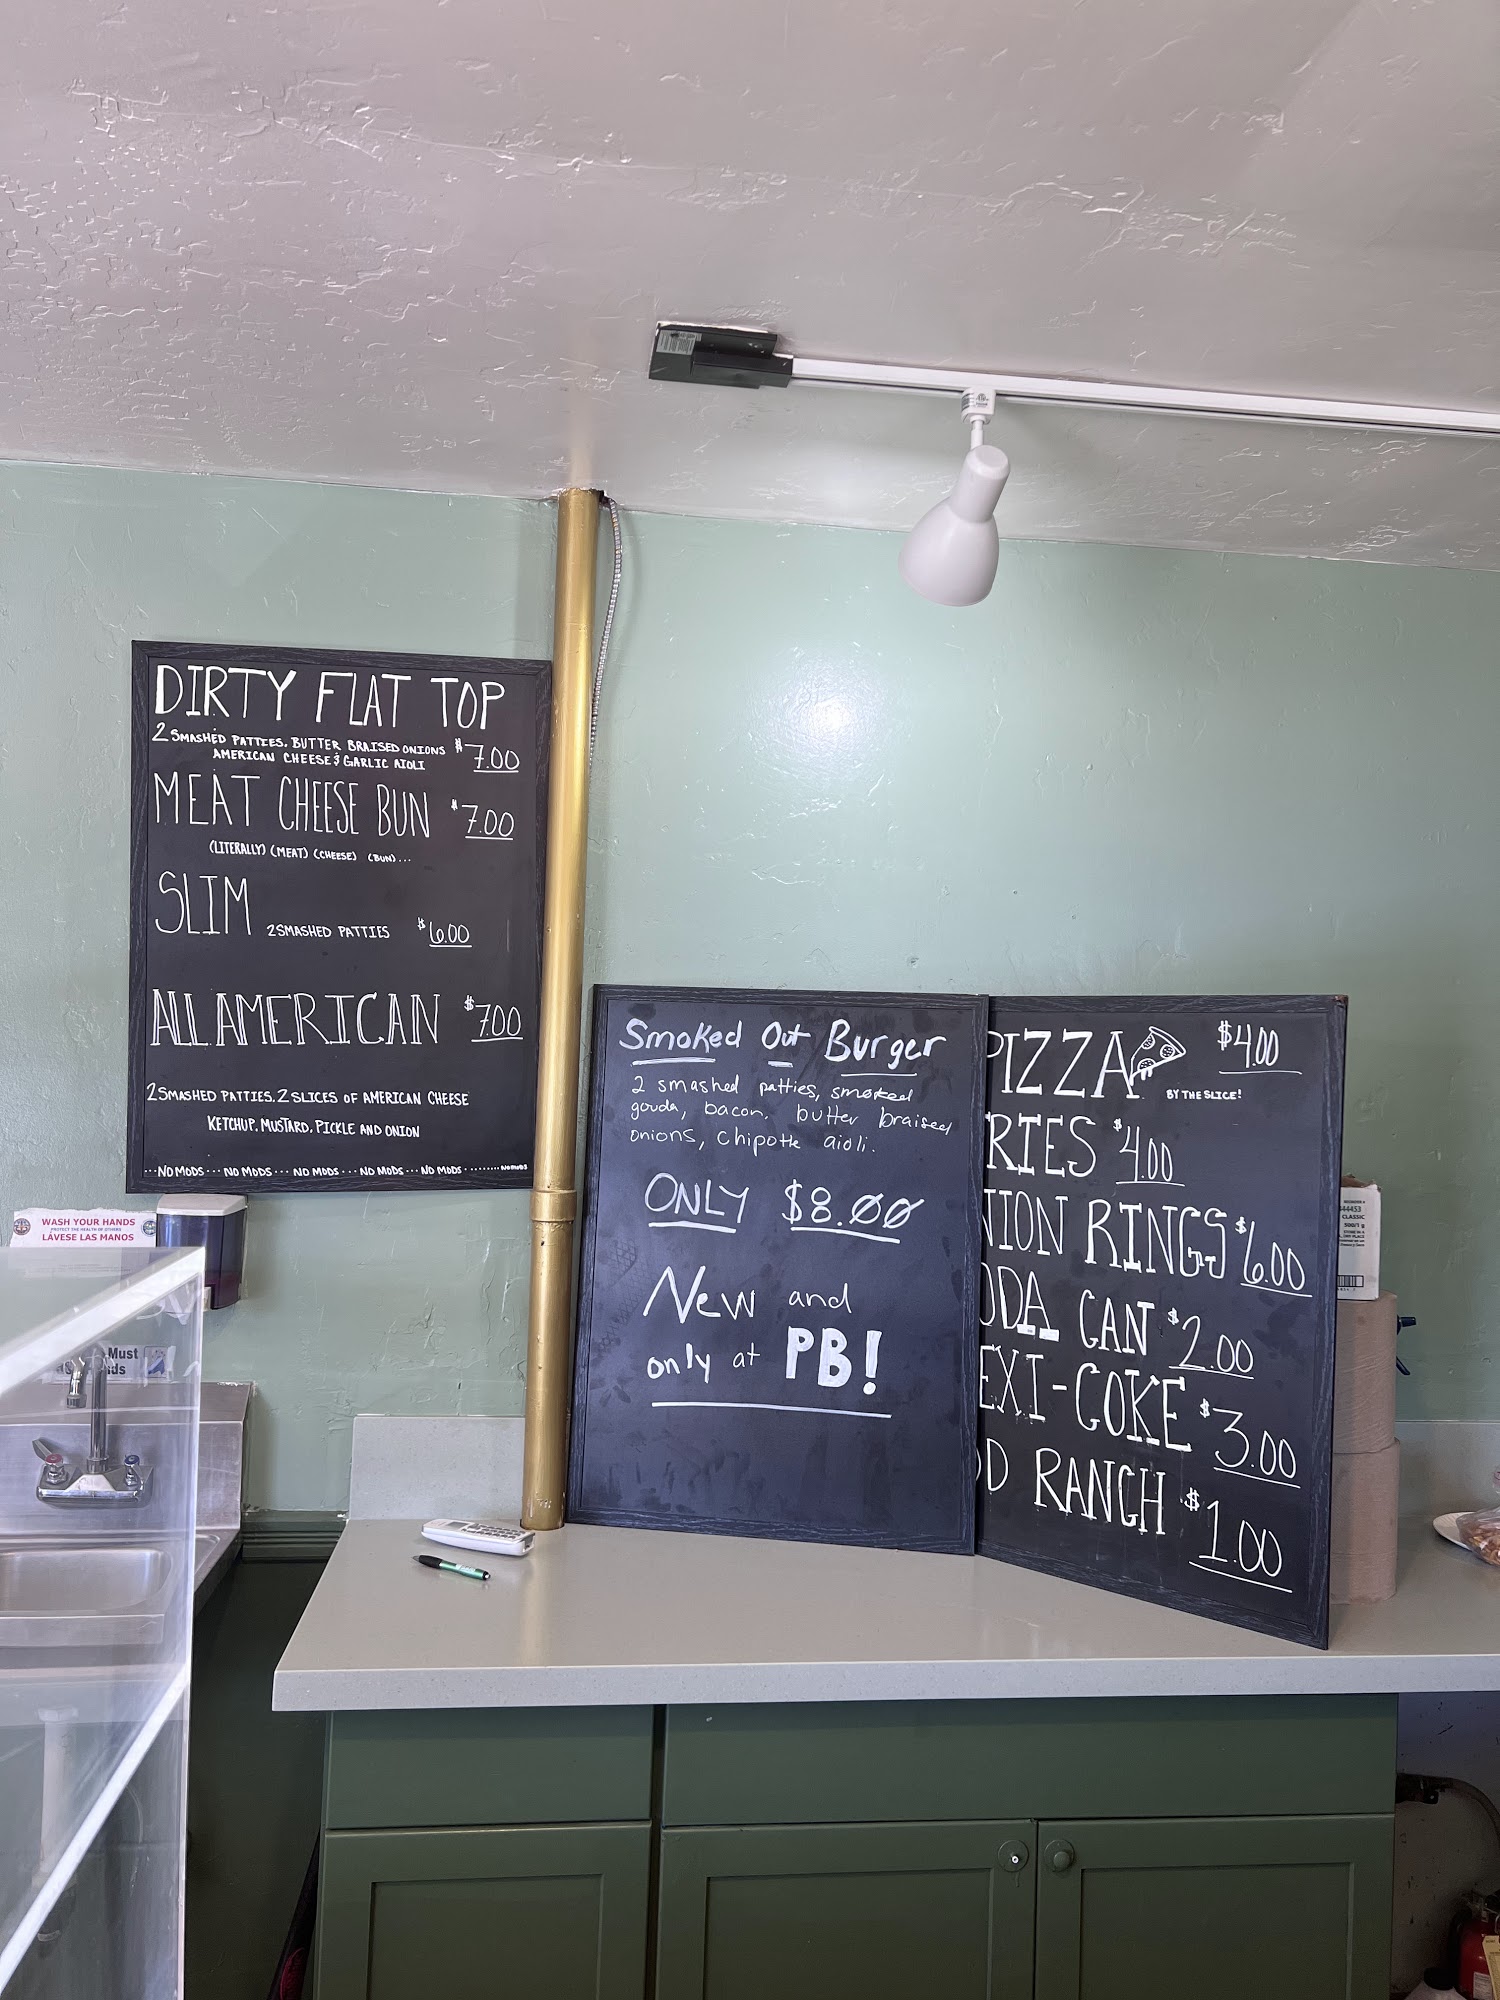 DIRTY FLAT TOP
2 SMASHED PATTIES. BUTTER BRAISED ONIONS $7.00
AMERICAN CHEESE & GARLIC AIOLI
MEAT CHEESE BUN $7.00
(LITERALLY) (MEAT) (CHEESE) (BUN)...
SLIM 2 SMASHED PATTIES $6.00
ALL AMERICAN $7.00
2 SMASHED PATTIES. 2 SLICES OF AMERICAN CHEESE
KETCHUP. MUSTARD. PICKLE AND ONION
...NO MODS...NO MODS...NO MODS...NO MODS...NO MODS.........NO MODS
Smoked Out Burger
2 smashed patties, smoked
gouda, bacon. butter braised
onions, chipotle aioli.
ONLY $8.00
New and
only at PB!
PIZZA $4.00
BY THE SLICE!
RIES $4.00
NION RINGS $6.00
ODA CAN $2.00
EXI-COKE $3.00
OD RANCH $1.00
WASH YOUR HANDS
PROTECT THE HEALTH OF OTHERS
LAVESE LAS MANOS
Must
ds
44453
CLASSIC
500/1 g